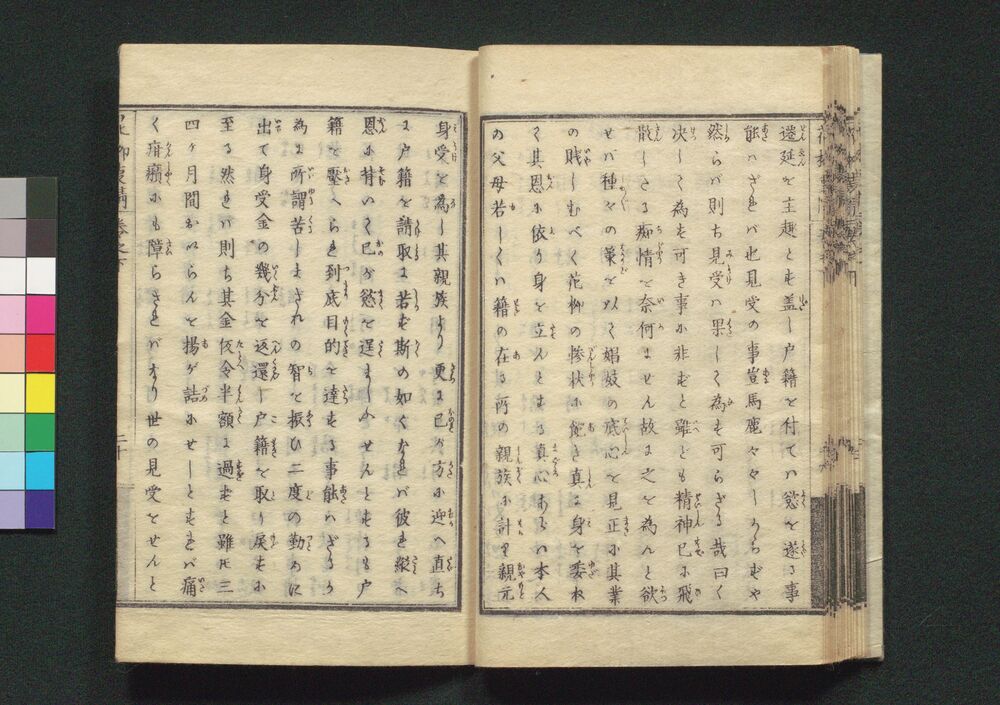 遷延を主趣とす盖し户籍を付てハ慾を遂る事
能ハざれバ也見受の事豈馬鹿々々しからずや
然らバ則ち見受ハ果しく為す可らざる哉曰く
决しく為す可き事に非ずと雖ども精神已に飛
散しさる痴情を奈何ません故に之を為んと欲
せバ種々の策を以く娼妓の底心を見正に其業
の賎しむべく花柳の惨状に飽き真に身を委ね
く其恩に依り身を立んとする真心あらバ本人
の父母若しくハ籍の在る所の親族に計り親元
身受を為し其親族より更に已が方に迎へ直ち
に户籍を請取に若ず斯の如くなれバ彼を縦へ
恩に背いく已が慾を逞ましふせんとするも户
籍を壓へられ到底目的を達する事能ハざるが
為に所謂苦しまぎれの智を振ひ二度の勤めに
出て身受金の幾分を返還し户籍を取り戻すに
至る然れバ則ち其金仮令半額に過ずと雖圧三
四ヶ月間おいらんを揚げ詰にせしとすれバ痛
く疳癪にも障らざれバなり世の見受をせんと